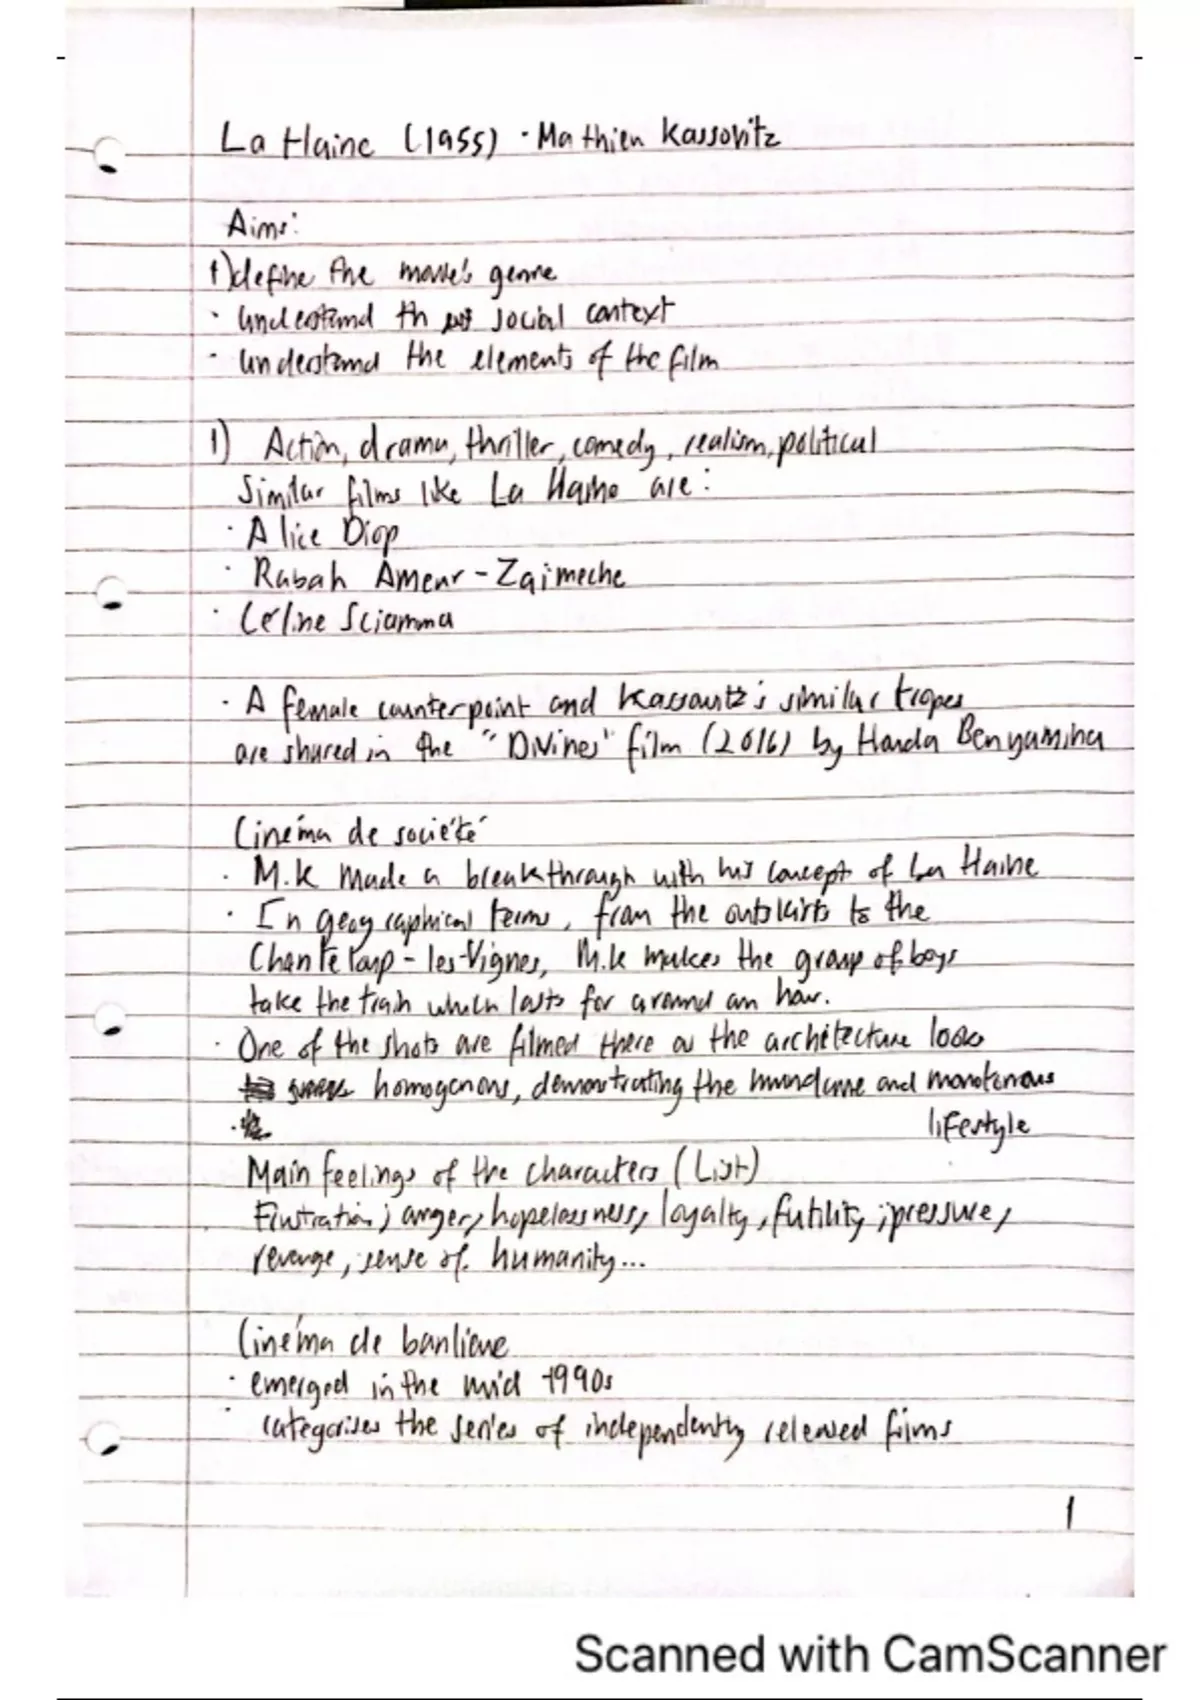 La Haine (1955) · Mathieu Kassovitz
Aims:
1) define the movie's genre
· Understand th social context
· Understand the elements of the film
1) Action, drama, thriller, comedy, realism, political
Similar films like La Haine are:
· Alice Diop
· Rabah Ameur-Zaimeche
· Céline Sciamma
· A female counterpoint and Kassovitz's similar tropes
are shared in the "Divines" film (2016) by Houda Benyamina
Cinéma de societé
· M.K made a breakthrough with his concept of La Haine
· In geographical terms, from the outskirts to the
Chanteloup-les-Vignes, M.K makes the group of boys
take the train which lasts for around an hour.
· One of the shots are filmed there as the architecture looks
homogenous, demonstrating the mundane and monotonous
lifestyle
Main feelings of the characters (List)
Frustration; anger, hopelessness, loyalty, futility; pressure,
revenge, sense of humanity...
Cinéma de banlieue
· emerged in the mid 1990s
· categorises the series of independently released films
1
Scanned with CamScanner